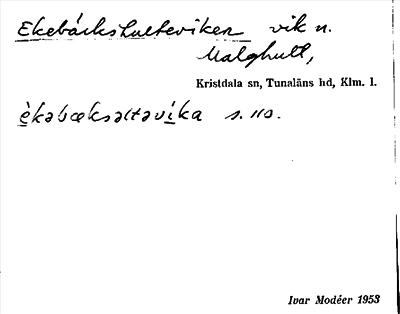 Ekebäckshulteviken vik n.
Malghult,
Kristdala sn, Tunaläns hd, Klm. l.
èkabæksəltavika s. 110.
Ivar Modéer 1953